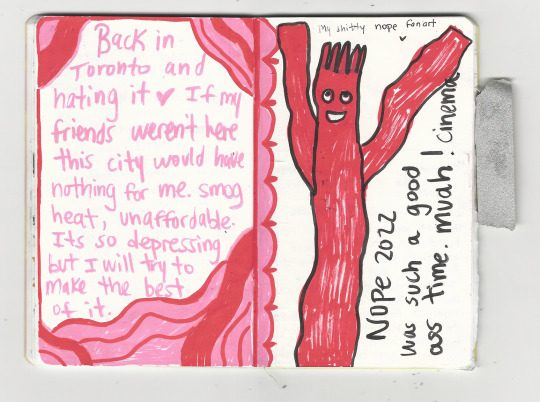 Back in
Toronto and
hating it ♥ If my
friends weren't here
this city would have
nothing for me. smog
heat, unaffordable.
Its so depressing
but I will try to
make the best
of it.
My shitty nope fan art
♥
NOPE 2022
was such a good
ass time. muah! cinema